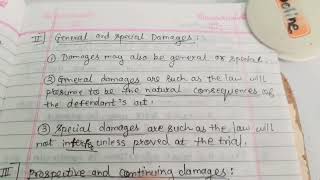 II] General and special Damages:
① Damages may also be general or special.
② General damages are such as the law will
presume to be the natural consequences of
the defendant's act.
③ Special damages are such as the law will
not infer unless proved at the trial.
III] Prospective and continuing damages: